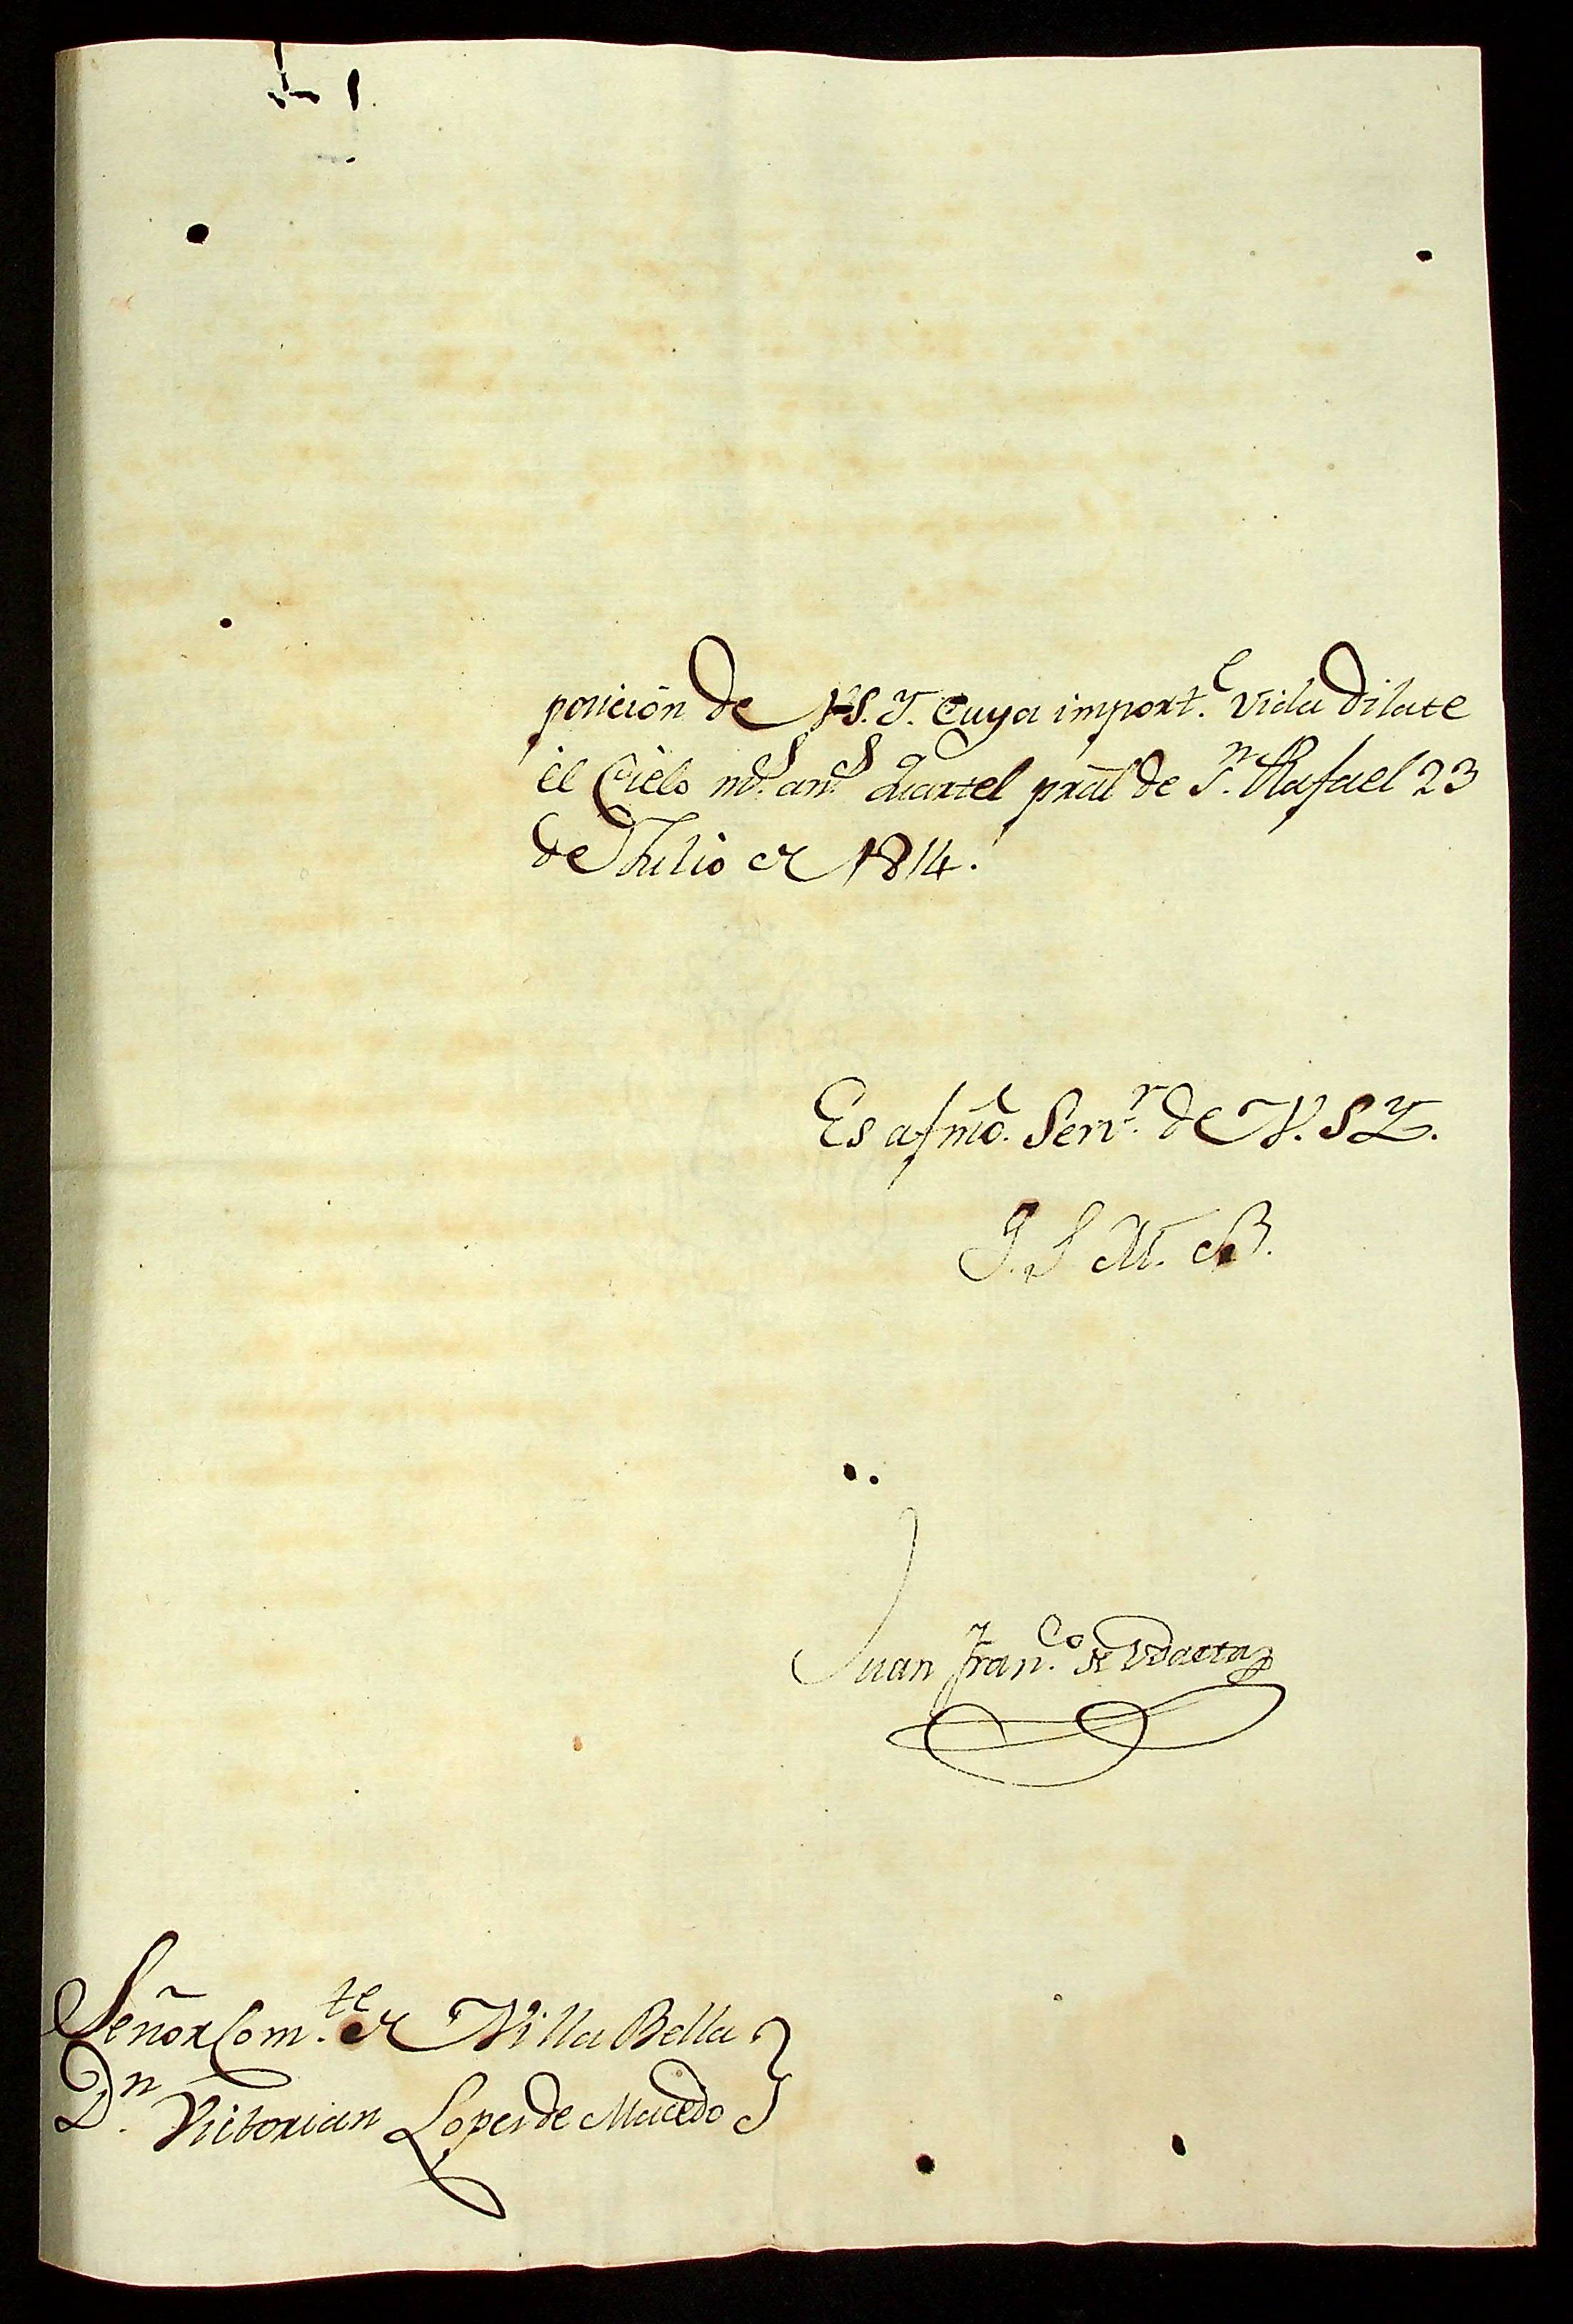 posicion de V.S.Y. Cuya import.e vida dilate
el Cielo m.s an.s Quartel pral de S.n Rafael 23
de Julio de 1814.
Es afmo. Serv.r de V.S.Y.
Q. S. M. B.
Juan Fran.co de Udaeta
Señor Com.te de Villa Bella
D.n Victorian Lopes de Macedo